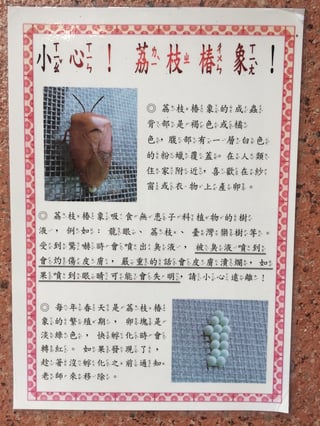 小心！ 荔枝椿象！
◎ 荔枝椿象的成蟲
背部是褐色或橘
色，腹部有一層白色
的粉蠟覆蓋。在人類
住家附近，喜歡在紗
窗或衣物上產卵。
◎ 荔枝椿象吸食無患子科植物的樹
液，例如：龍眼、荔枝、臺灣欒樹等。
受到驚嚇時會噴出臭液，被臭液噴到
會灼傷皮膚，嚴重的話會皮膚潰爛，如
果噴到眼睛可能會失明，請小心遠離！
◎ 每年春天是荔枝椿
象的繁殖期，卵塊是
淡綠色，快孵化時會
轉紅。如果發現了，
趁著沒孵化之前通知
老師來移除。